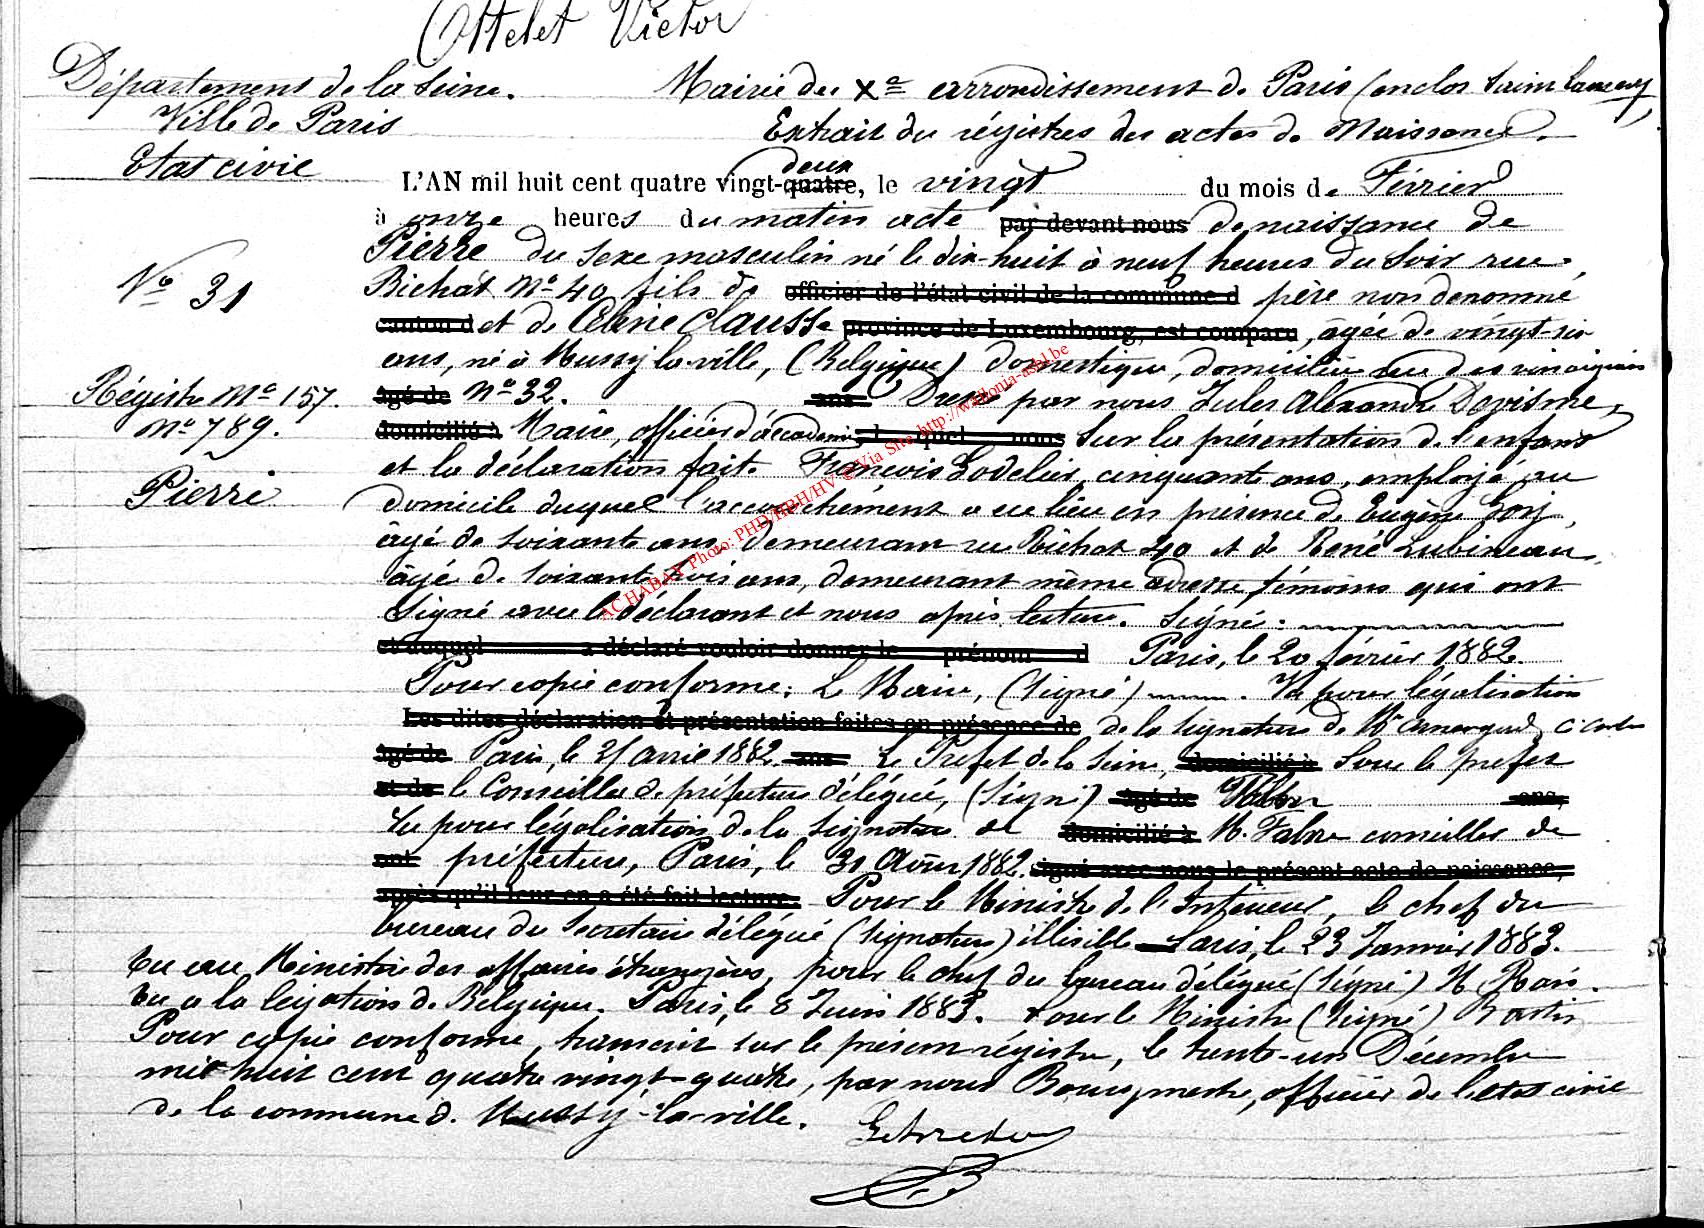 Ottelet Victor
Département de la Seine. Mairie du Xe arrondissement de Paris (enclos Saint Laurent)
Ville de Paris Extrait du régistres des actes de Naissance.
Etat civil
deux
L'AN mil huit cent quatre vingt-quatre, le vingt du mois de Février
à onze heures du matin acte par devant nous de naissance de
Pierre du sexe masculin né le dix-huit à neuf heures du soir rue
No 31 Bichat No 40 fils de officier de l'état civil de la commune d père non denommé
canton d et de Céline Clausse province de Luxembourg, est comparu, âgée de vingt-six
ans, né à Mussy la ville, (Belgique) domestique, domiciliée rue des vinaigriers
Régistre No 157. âgé de No 32. ans Dressé par nous Jules Alexandre Devisme,
No 789. domicilié à Maire, officier d'académie, l quel nous Sur la présentation de l'enfant
et la déclaration faite François Lodelier, cinquante ans, employé au
Pierre domicile duquel l'accouchement a eu lieu en présence de Eugène
âgé de soixante ans, demeurant rue Bichat 40 et de René Lubineau
âgé de soixante trois ans, demeurant même adresse, témoins qui ont
Signé avec le déclarant et nous après lecture. Signé:
et duquel a déclaré vouloir donner le prénom d Paris, le 20 février 1882.
Pour copie conforme: Le Maire, (Signé) . Vu pour légalisation
Les dites déclaration et présentation faites en présence de de la Signature de Mr
âgé de Paris, le 25 avril 1882. ans Le Préfet de la Seine, domicilié à Pour le préfet
et de le Conseiller de préfecture délégué, (Signé) âgé de Fabre ans,
Vu pour légalisation de la Signature de domicilié à M. Fabre conseiller de
ont préfecture, Paris, le 31 Août 1882. signé avec nous le présent acte de naissance,
après qu'il leur en a été fait lecture. Pour le Ministre de l'Intérieur, le chef du
bureau du Secrétaire délégué (Signature) illisible Paris, le 23 Janvier 1883.
Vu au Ministère des affaires étrangères, pour le chef du bureau délégué (Signé) H
Vu a la légation de Belgique. Paris, le 8 Juin 1883. Pour le Ministre (Signé) Bastin
Pour copie conforme, transcrit sur le présent régistre, le trente-un Décembre
mil huit cent quatre vingt-quatre, par nous Bourgmestre, officier de l'etat civil
de la commune de Mussy-la-ville.
ACHABAY Photo: PHD/HBH/HV ©Via Site http://wallonia-asbl.be